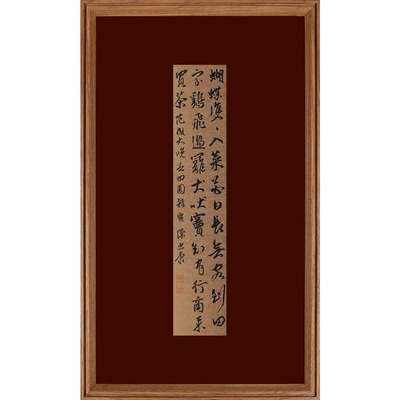 蝴蝶雙〻入菜花日長無客到田
家鷄飛過籬犬吠竇知有行商来
買茶 范成大晚春田園雜興